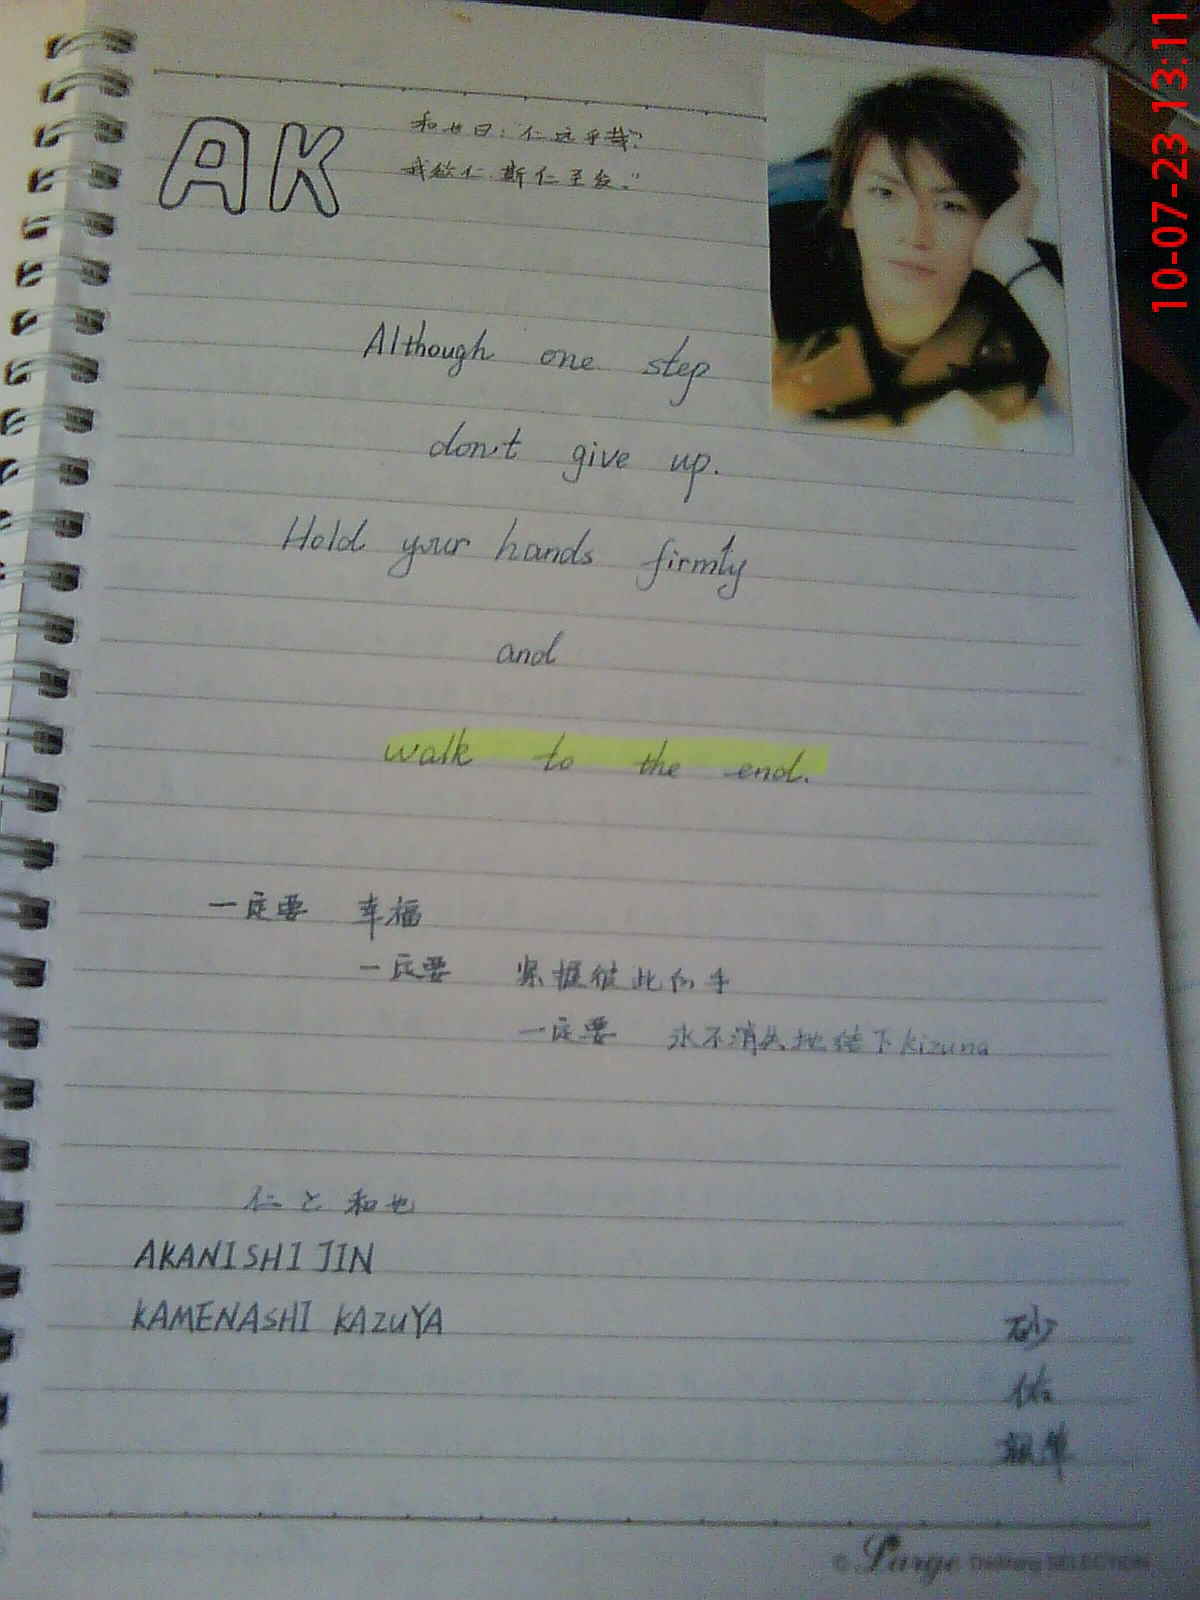 AK
和也曰:"仁远乎哉?
我欲仁.斯仁至矣."
Although one step
don't give up.
Hold your hands firmly
and
walk to the end.
一定要 幸福
一定要 紧握彼此的手
一定要 永不消失地结下kizuna
仁と和也
AKANISHI JIN
KAMENASHI KAZUYA
砂
佑
© Large SELECTION
10-07-23 13:11